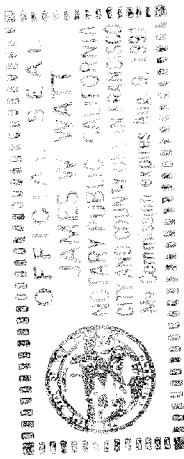 OFFICIAL SEAL
JAMES W WATT
NOTARY PUBLIC CALIFORNIA
CITY AND COUNTY OF SAN FRANCISCO
My Commission expires Aug. 9, 1991